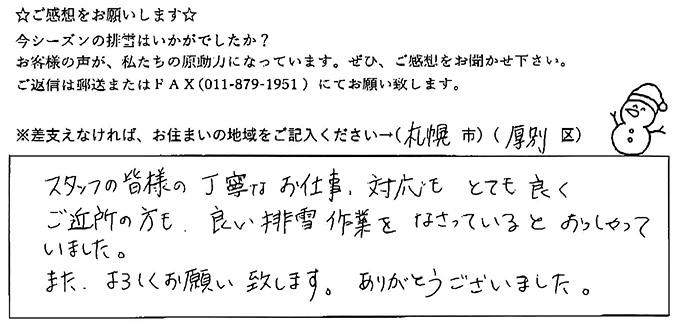 ☆ご感想をお願いします☆
今シーズンの排雪はいかがでしたか？
お客様の声が、私たちの原動力になっています。ぜひ、ご感想をお聞かせ下さい。
ご返信は郵送またはＦＡＸ(011-879-1951）にてお願い致します。
※差支えなければ、お住まいの地域をご記入ください→(札幌 市) (厚別 区)
スタッフの皆様の丁寧なお仕事、対応も とても良く
ご近所の方も、良い排雪作業を なさっていると おっしゃって
いました。
また、よろしくお願い致します。ありがとうございました。